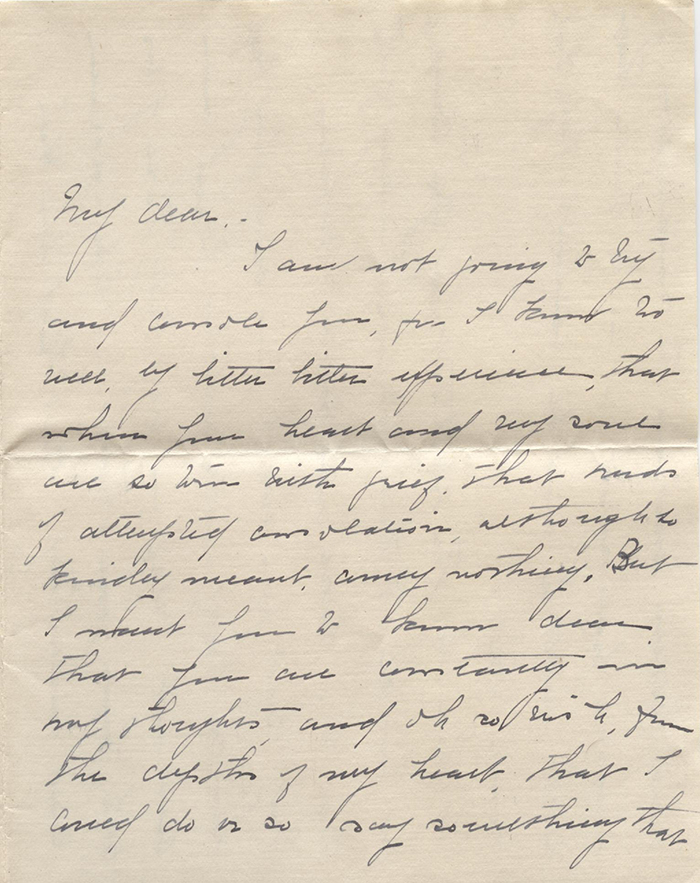 My dear. -
I am not going to try
and console you, for I know too
well, by bitter bitter experience, that
when your heart and very soul
are so torn with grief, that words
of attempted consolation, although so
kindly meant, convey nothing. But
I want you to know dear
that you are constantly in
my thoughts, and oh so wish, from
the depths of my heart, that I
could do or so say something that